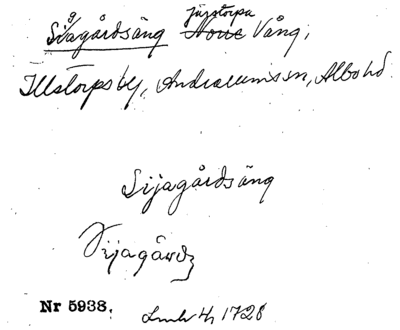 Sijagårdsäng jujstorpa Norre Vång,
Illstorps by, Andrarums sn, Albo hd.
Sijagårdsäng
Sijagård
Nr 5938. Lmh 4/1 1728